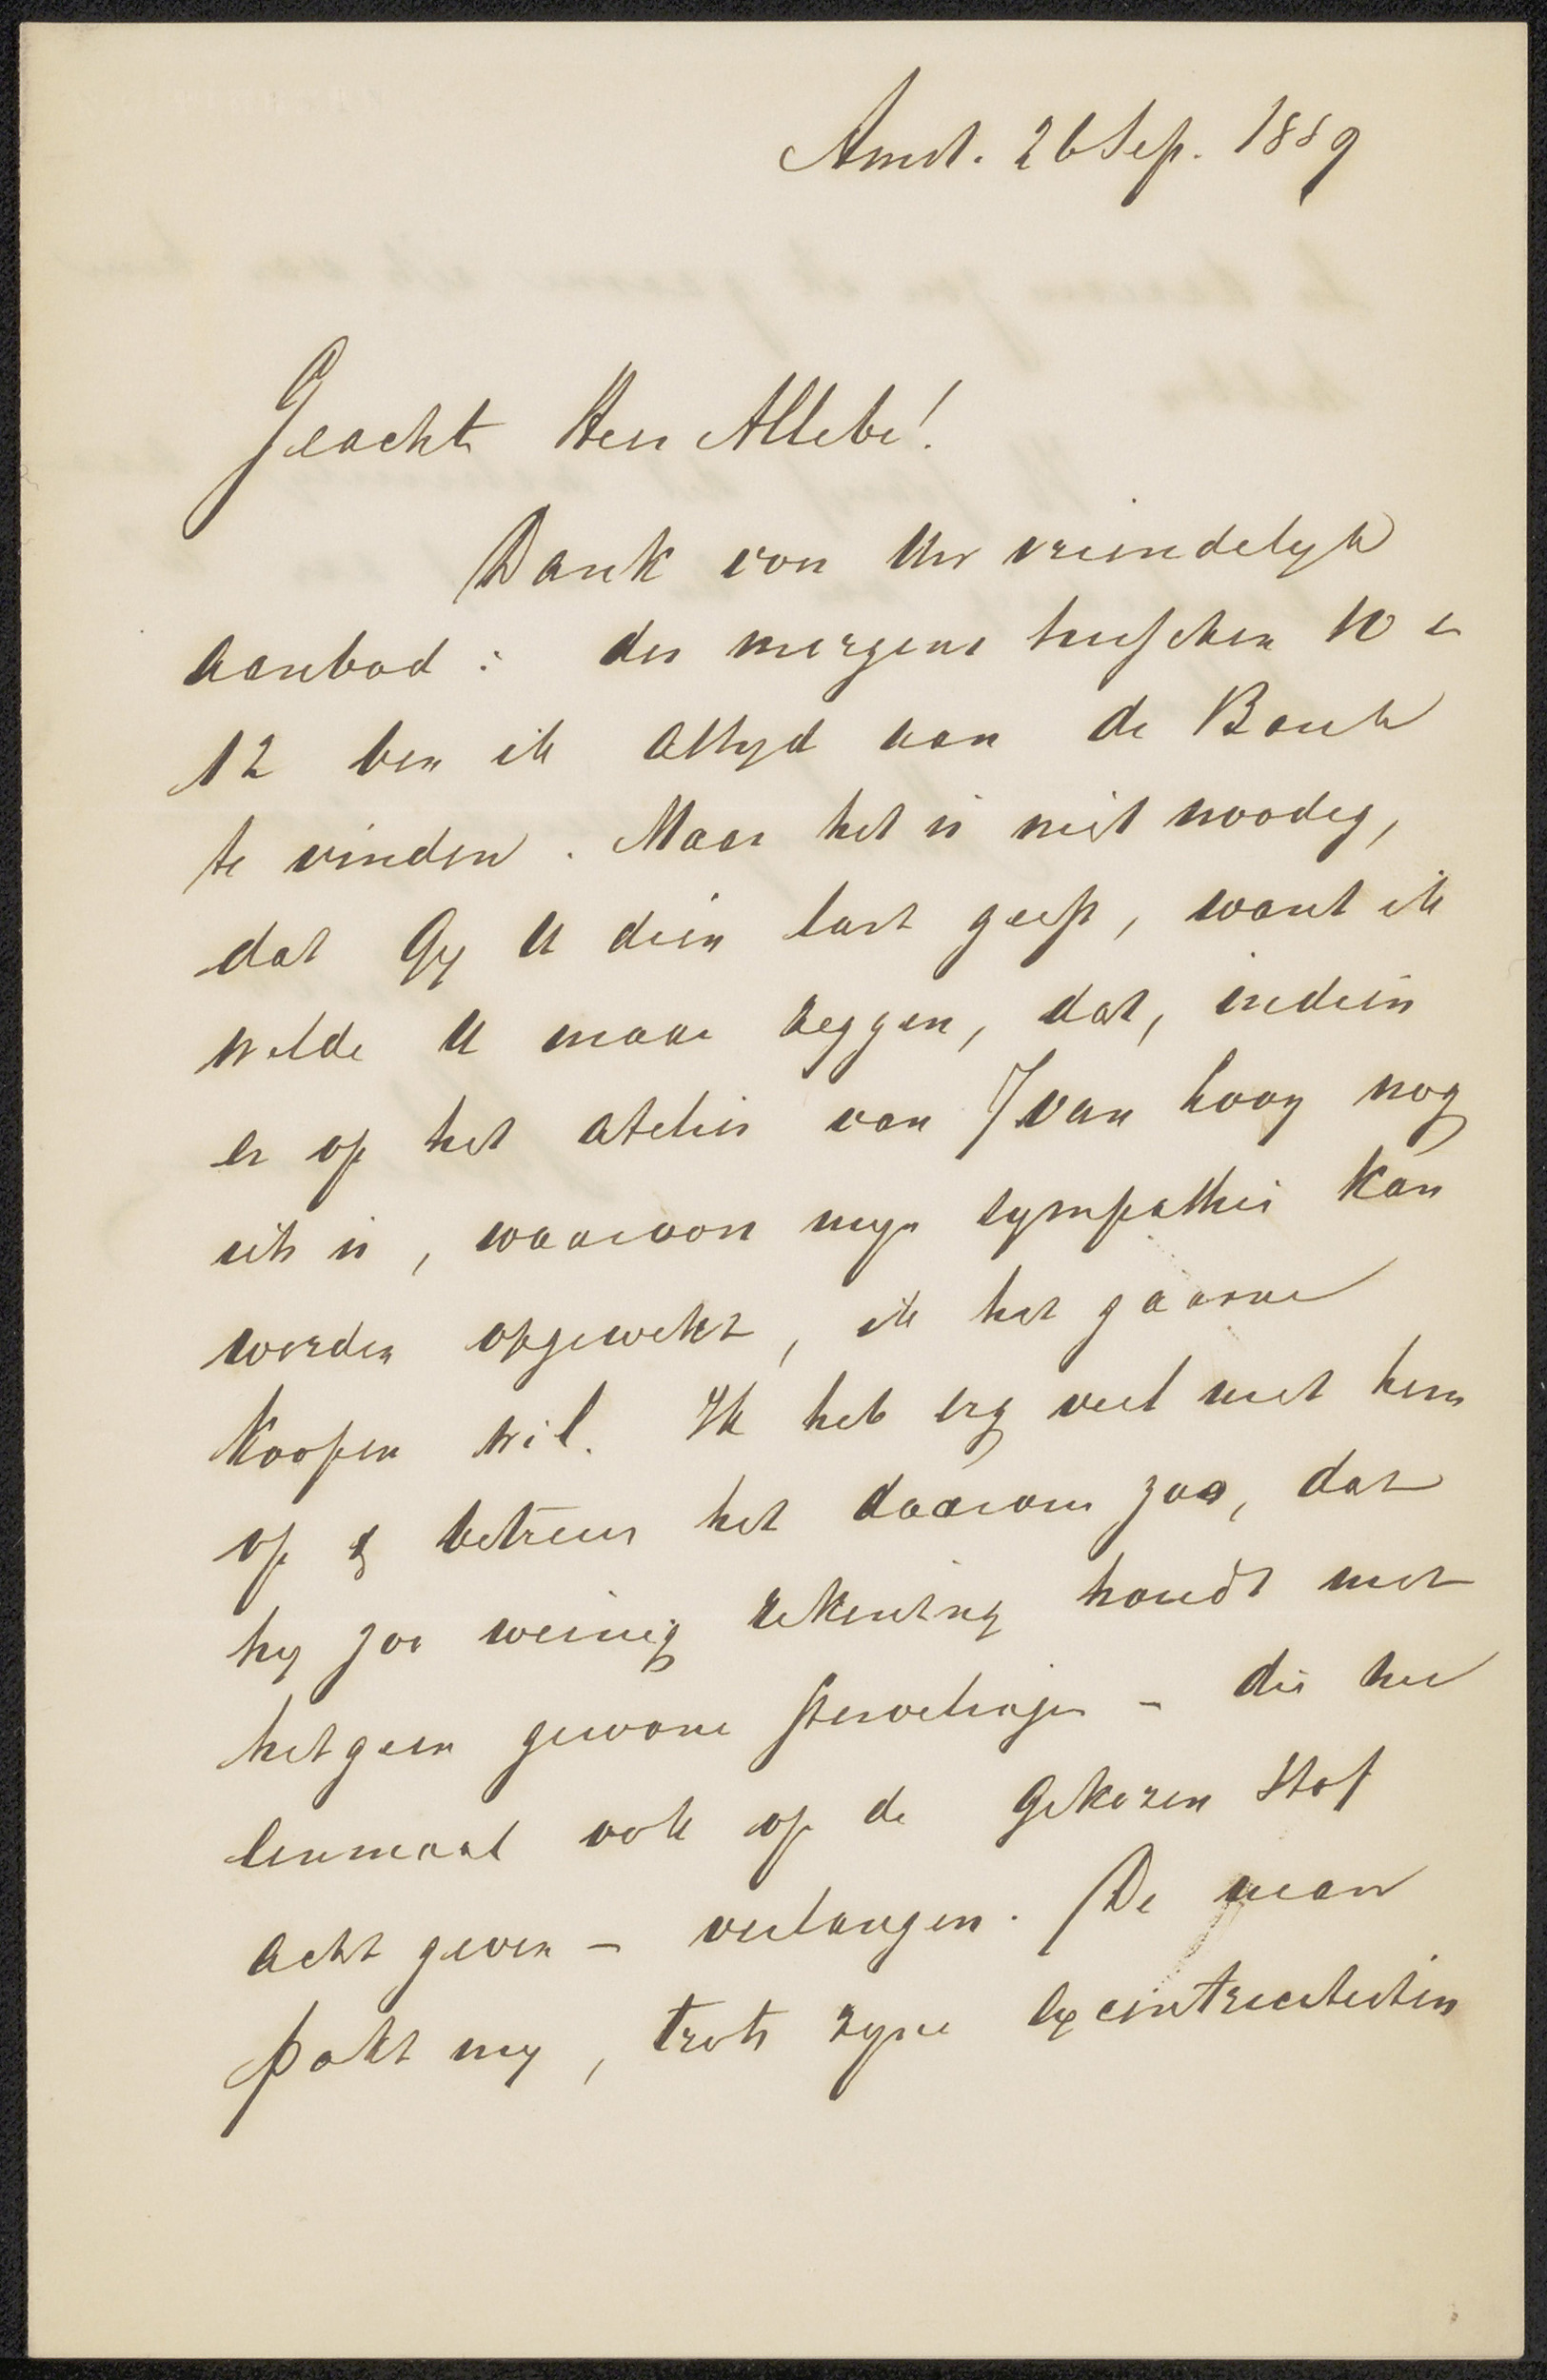 Amst. 26 Sep. 1889
Geachte Heer Allebé!
Dank voor Uw vriendelyk
aanbod: des morgens tusschen 10 en
12 ben ik altyd aan de Bank
te vinden. Maar het is niet noodig,
dat Gy U dien last geeft, want ik
wilde U maar zeggen, dat, indien
er op het atelier van J van Looy nog
iets is, waarvoor myn sympathie kan
worden opgewekt, ik het gaarne
koopen wil. Ik heb erg veel met hem
op & betreur het daarom zoo, dat
hy zoo weinig rekening houdt met
hetgeen gewone stervelingen – die nu
eenmaal ook op de gekozen stof
acht geven – verlangen. De man
pakt my, trots zyne excentriciteiten